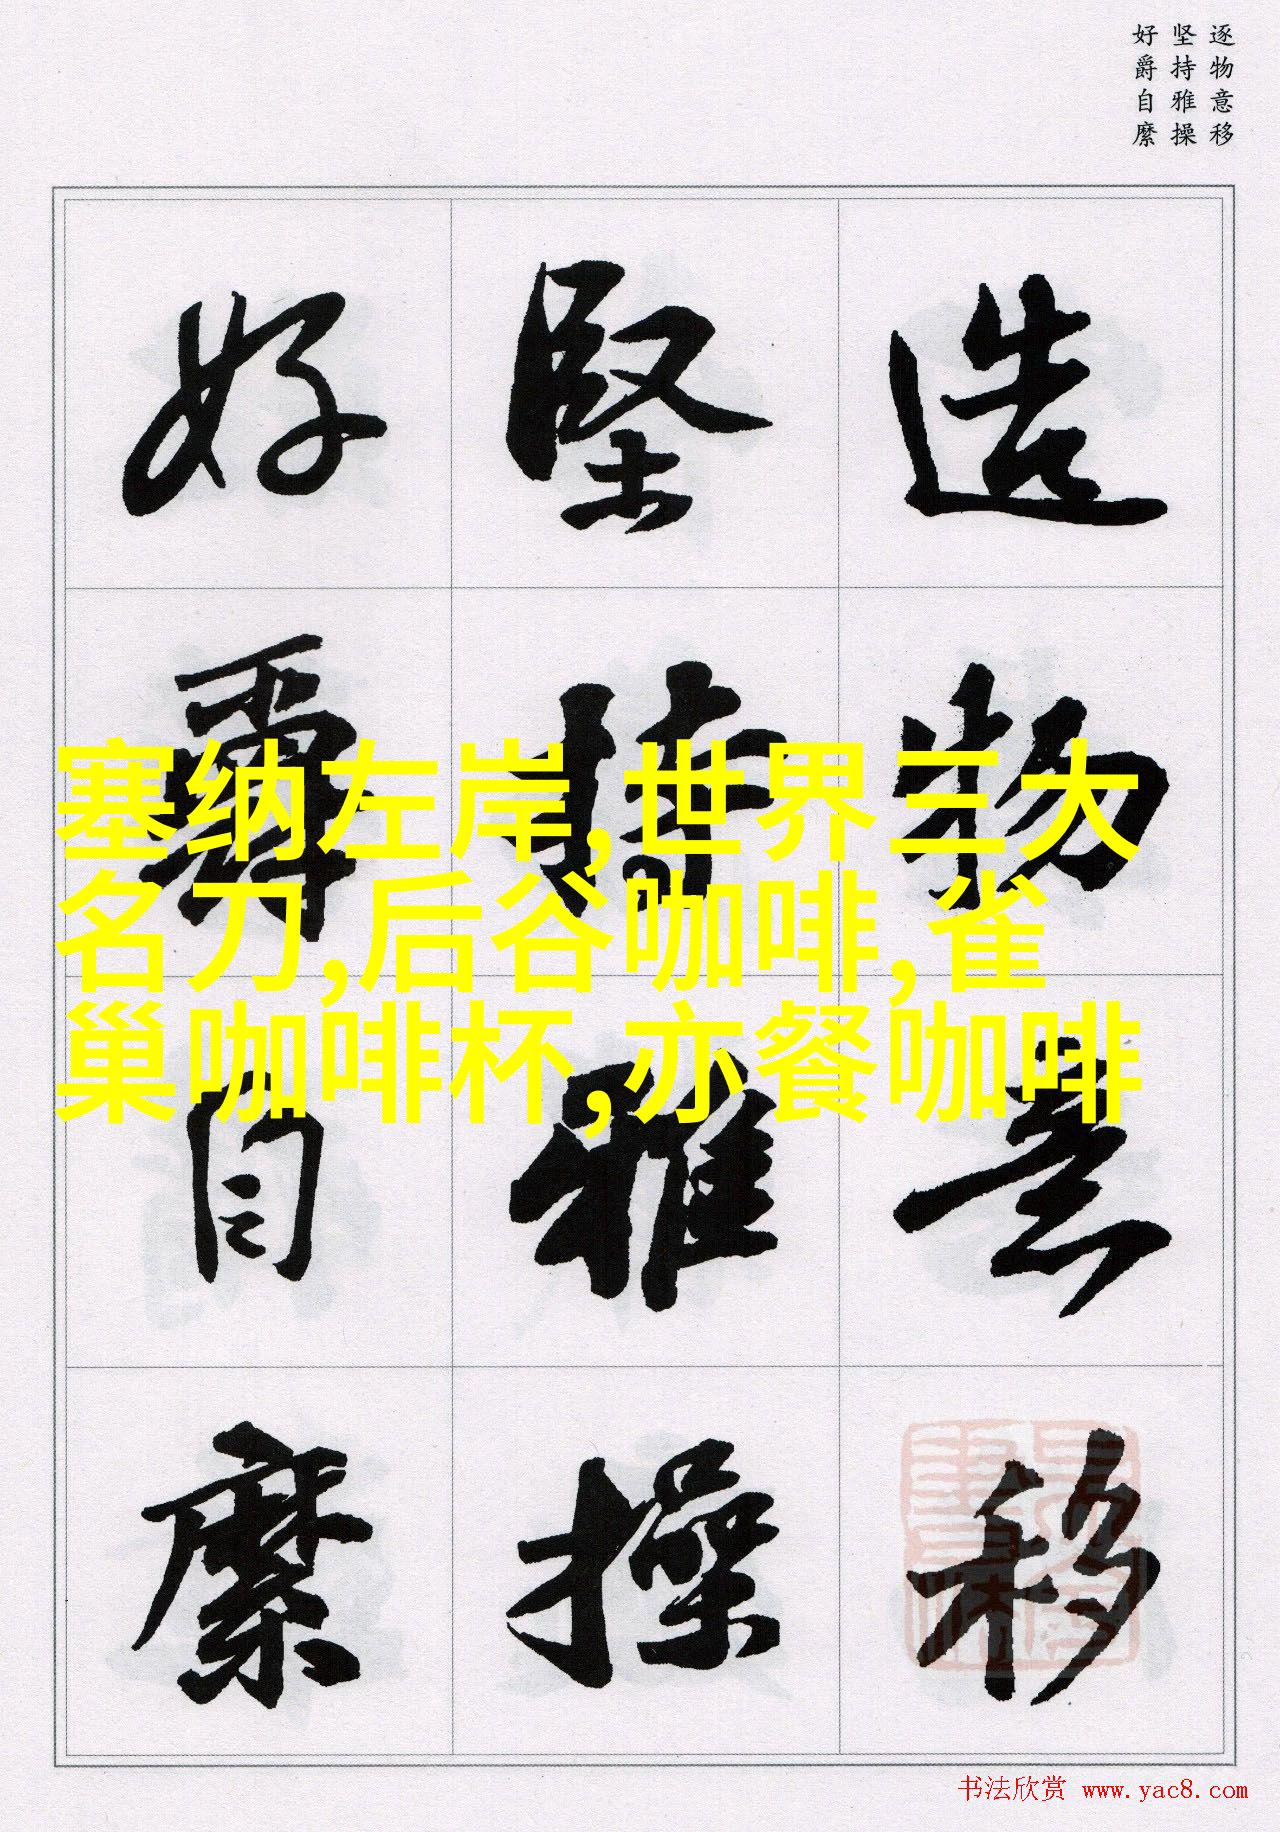 逐物意移
坚持雅操
好爵自縻
造物意移
堅持雅操
好爵自縻
塞纳左岸,世界三大
名刀,后谷咖啡,雀
巢咖啡杯,亦餐咖啡
书法欣赏 www.yac8.com